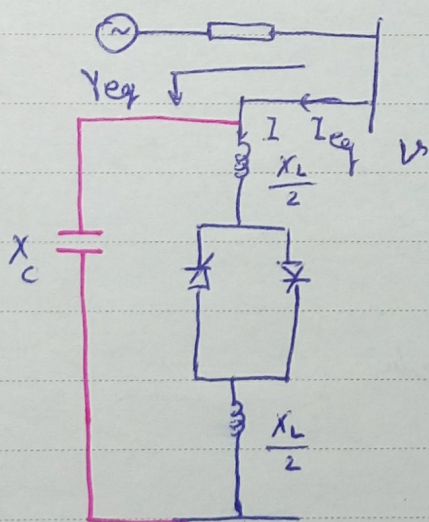 ~
Yeq
I
Ieq
V
XL/2
XC
XL/2